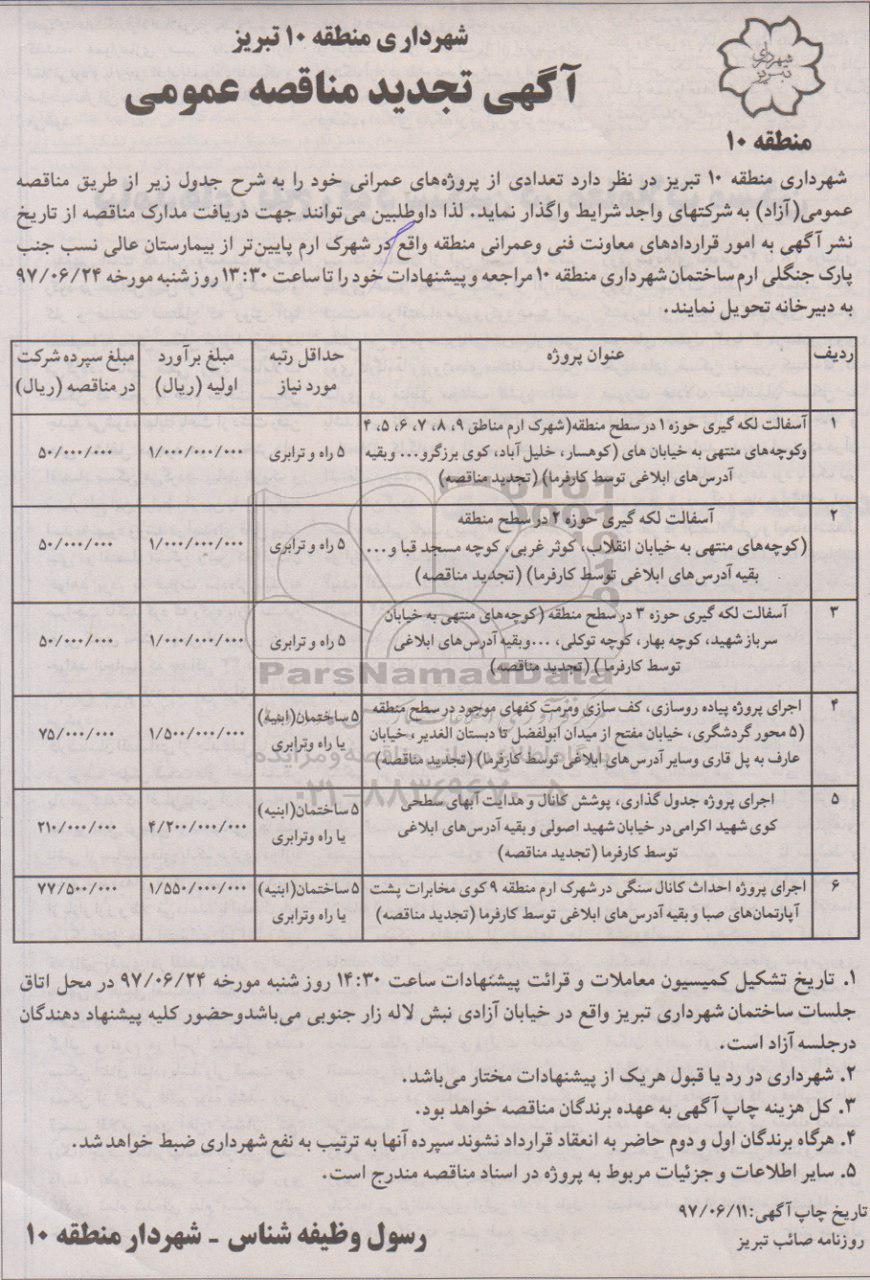 شهرداری منطقه ۱۰ تبریز
آگهی تجدید مناقصه عمومی
شهرداری تبریز
منطقه ۱۰
شهرداری منطقه ۱۰ تبریز در نظر دارد تعدادی از پروژه‌های عمرانی خود را به شرح جدول زیر از طریق مناقصه
عمومی(آزاد) به شرکتهای واجد شرایط واگذار نماید. لذا داوطلبین می‌توانند جهت دریافت مدارک مناقصه از تاریخ
نشر آگهی به امور قراردادهای معاونت فنی وعمرانی منطقه واقع در شهرک ارم پایین‌تر از بیمارستان عالی نسب جنب
پارک جنگلی ارم ساختمان شهرداری منطقه ۱۰ مراجعه و پیشنهادات خود را تا ساعت ۱۳:۳۰ روز شنبه مورخه ۹۷/۰۶/۲۴
به دبیرخانه تحویل نمایند.
ردیف عنوان پروژه حداقل رتبه مبلغ برآورد مبلغ سپرده شرکت
مورد نیاز اولیه (ریال) در مناقصه (ریال)
۱ آسفالت لکه گیری حوزه ۱ در سطح منطقه(شهرک ارم مناطق ۹، ۸، ۷، ۶، ۵، ۴
وکوچه‌های منتهی به خیابان های (کوهسار، خلیل آباد، کوی برزگرو... وبقیه ۵ راه و ترابری ۱/۰۰۰/۰۰۰/۰۰۰ ۵۰/۰۰۰/۰۰۰
آدرس‌های ابلاغی توسط کارفرما) (تجدید مناقصه)
۲ آسفالت لکه گیری حوزه ۲ دو سطح منطقه
(کوچه‌های منتهی به خیابان انقلاب، کوثر غربی، کوچه مسجد قبا و... ۵ راه و ترابری ۱/۰۰۰/۰۰۰/۰۰۰ ۵۰/۰۰۰/۰۰۰
بقیه آدرس‌های ابلاغی توسط کارفرما) (تجدید مناقصه)
۳ آسفالت لکه گیری حوزه ۳ در سطح منطقه (کوچه‌های منتهی به خیابان
سرباز شهید، کوچه بهار، کوچه توکلی، ...وبقیه آدرس‌های ابلاغی ۵ راه و ترابری ۱/۰۰۰/۰۰۰/۰۰۰ ۵۰/۰۰۰/۰۰۰
توسط کارفرما) (تجدید مناقصه)
۴ اجرای پروژه پیاده روسازی، کف سازی ومرمت کفهای موجود در سطح منطقه ۵ ساختمان (ابنیه)
(۵ محور گردشگری، خیابان مفتح از میدان ابولفضل تا دبستان الغدیر، خیابان یا راه وترابری ۱/۵۰۰/۰۰۰/۰۰۰ ۷۵/۰۰۰/۰۰۰
عارف به پل قاری وسایر آدرس‌های ابلاغی توسط کارفرما) (تجدید مناقصه)
۵ اجرای پروژه جدول گذاری، پوشش کانال و هدایت آبهای سطحی ۵ ساختمان(ابنیه)
کوی شهید اکرامی در خیابان شهید اصولی و بقیه آدرس‌های ابلاغی یا راه وترابری ۴/۲۰۰/۰۰۰/۰۰۰ ۲۱۰/۰۰۰/۰۰۰
توسط کارفرما (تجدید مناقصه)
۶ اجرای پروژه احداث کانال سنگی در شهرک ارم منطقه ۹ کوی مخابرات پشت ۵ ساختمان(ابنیه) ۱/۵۵۰/۰۰۰/۰۰۰ ۷۷/۵۰۰/۰۰۰
آپارتمان‌های صبا و بقیه آدرس‌های ابلاغی توسط کارفرما (تجدید مناقصه) یا راه وترابری
ParsNamadData
۰۲۱-۸۸۳۴۹۶۷۰-۵
۱. تاریخ تشکیل کمیسیون معاملات و قرائت پیشنهادات ساعت ۱۴:۳۰ روز شنبه مورخه ۹۷/۰۶/۲۴ در محل اتاق
جلسات ساختمان شهرداری تبریز واقع در خیابان آزادی نبش لاله زار جنوبی می‌باشدوحضور کلیه پیشنهاد دهندگان
درجلسه آزاد است.
۲. شهرداری در رد یا قبول هریک از پیشنهادات مختار می‌باشد.
۳. کل هزینه چاپ آگهی به عهده برندگان مناقصه خواهد بود.
۴. هرگاه برندگان اول و دوم حاضر به انعقاد قرارداد نشوند سپرده آنها به ترتیب به نفع شهرداری ضبط خواهد شد.
۵. سایر اطلاعات و جزئیات مربوط به پروژه در اسناد مناقصه مندرج است.
تاریخ چاپ آگهی:۹۷/۰۶/۱۱
روزنامه صائب تبریز
رسول وظیفه شناس - شهردار منطقه ۱۰